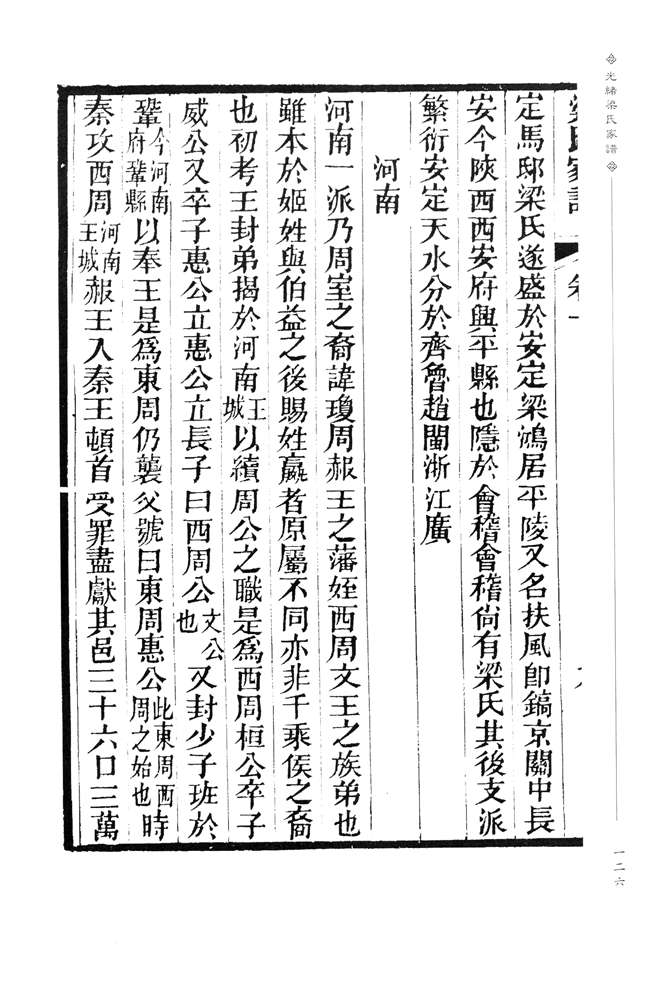 光緒梁氏家譜
一二六
梁氏家譜 卷一
定馬邸梁氏遂盛於安定梁鴻居平陵又名扶風卽鎬京關中長
安今陝西西安府興平縣也隱於會稽會稽尙有梁氏其後支派
繁衍安定天水分於齊魯趙閩浙江廣
河南
河南一派乃周室之裔諱瓊周赧王之藩姪西周文王之族弟也
雖本於姬姓與伯益之後賜姓嬴者原屬不同亦非千乘侯之裔
也初考王封弟揭於河南王城以續周公之職是爲西周桓公卒子
威公又卒子惠公立惠公立長子曰西周公文公也又封少子班於
鞏今河南府鞏縣以奉王是爲東周仍襲父號曰東周惠公此東周西周之始也時
秦攻西周河南王城赧王入秦王頓首受罪盡獻其邑三十六口三萬